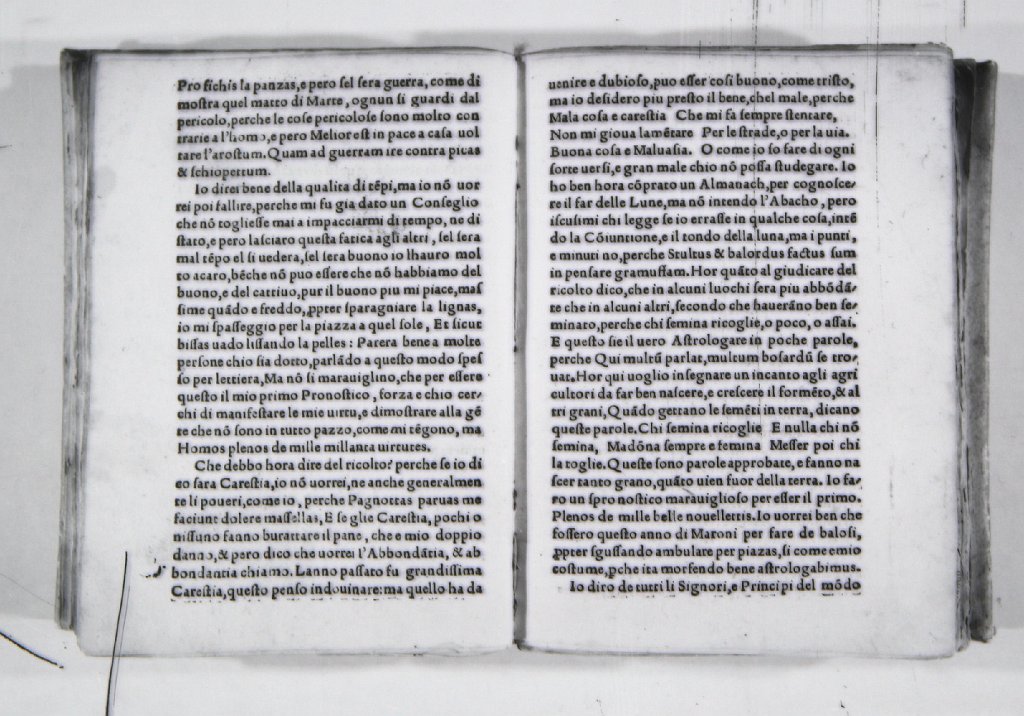 Pro fichis la panzas,e pero sel sera guerra, come di
mostra quel matto di Marte, ognun si guardi dal
pericolo,perche le cose pericolose sono molto con
trarie a l'homo,e pero Melior est in pace a casa uol
tare l'arostum. Quam ad guerram ire contra picas
& schiopettum.
Io direi bene della qualita di tẽpi,ma io nõ uor
rei poi fallire,perche mi fu gia dato un Conseglio
che nõ togliesse mai a impacciarmi di tempo, ne di
stato,e pero lasciaro questa fatica agli altri, sel sera
mal tẽpo el si uedera,sel sera buono io lhauro mol
to acaro,bẽche nõ puo essere che nõ habbiamo del
buono,e del cattiuo,pur il buono piu mi piace,mas
sime quãdo e freddo,ꝓpter sparagniare la lignas,
io mi spasseggio per la piazza a quel sole, Et sicut
bissas uado lissando la pelles: Parera bene a molte
persone chio sia dotto,parlãdo a questo modo spes
so per lettiera,Ma nõ si marauiglino,che per essere
questo il mio primo Pronostico, forza e chio cer-
chi di manifestare le mie uirtu,e dimostrare alla gẽ
te che nõ sono in tutto pazzo,come mi tẽgono, ma
Homos plenos de mille millanta uirtutes.
Che debbo hora dire del ricolto? perche se io di
co sara Carestia,io nõ uorrei,ne anche generalmen
te li poueri,come io, perche Pagnottas paruas me
faciunt dolere massellas, E se glie Carestia, pochi o
nissuno fanno burattare il pane, che e mio doppio
danno,& pero dico che uorrei l'Abbondãtia, & ab
bondantia chiamo. Lanno passato fu grandissima
Carestia,questo penso indouinare: ma quello ha da
uenire e dubioso,puo esser cosi buono,come tristo,
ma io desidero piu presto il bene,chel male,perche
Mala cosa e carestia Che mi fa sempre stentare,
Non mi gioua lamẽtare Per le strade,o per la uia.
Buona cosa e Maluasia. O come io so fare di ogni
sorte uersi,e gran male chio nõ possa studegare. Io
ho ben hora cõprato un Almanach,per cognosce-
re il far delle Lune,ma nõ intendo l'Abacho, pero
iscusimi chi legge se io errasse in qualche cosa,intẽ
do la Cõiuntione,e il tondo della luna,ma i punti,
e minuti no,perche Stultus & balordus factus sum
in pensare gramuffam. Hor quãto al giudicare del
ricolto dico,che in alcuni luochi sera piu abbõdã-
te che in alcuni altri,secondo che hauerãno ben se-
minato,perche chi semina ricoglie,o poco, o assai.
E questo sie il uero Astrologare in poche parole,
perche Qui multũ parlat, multum bosardũ se tro-
uat. Hor qui uoglio insegnare un incanto agli agri
cultori da far ben nascere,e crescere il formẽto,& al
tri grani, Quãdo gettano le semẽti in terra, dicano
queste parole. Chi semina ricoglie E nulla chi nõ
semina, Madõna sempre e femina Messer poi chi
la toglie. Queste sono parole approbate, e fanno na
scer tanto grano,quãto uien fuor della terra. Io fa-
ro un spronostico marauiglioso per esser il primo.
Plenos de mille belle nouellettis. Io uorrei ben che
fossero questo anno di Maroni per fare de balosi,
ꝓpter sgussando ambulare per piazas,si come e mio
costume, pche ita morfendo bene astrologabimus.
Io diro de tutti li Signori,e Principi del mõdo